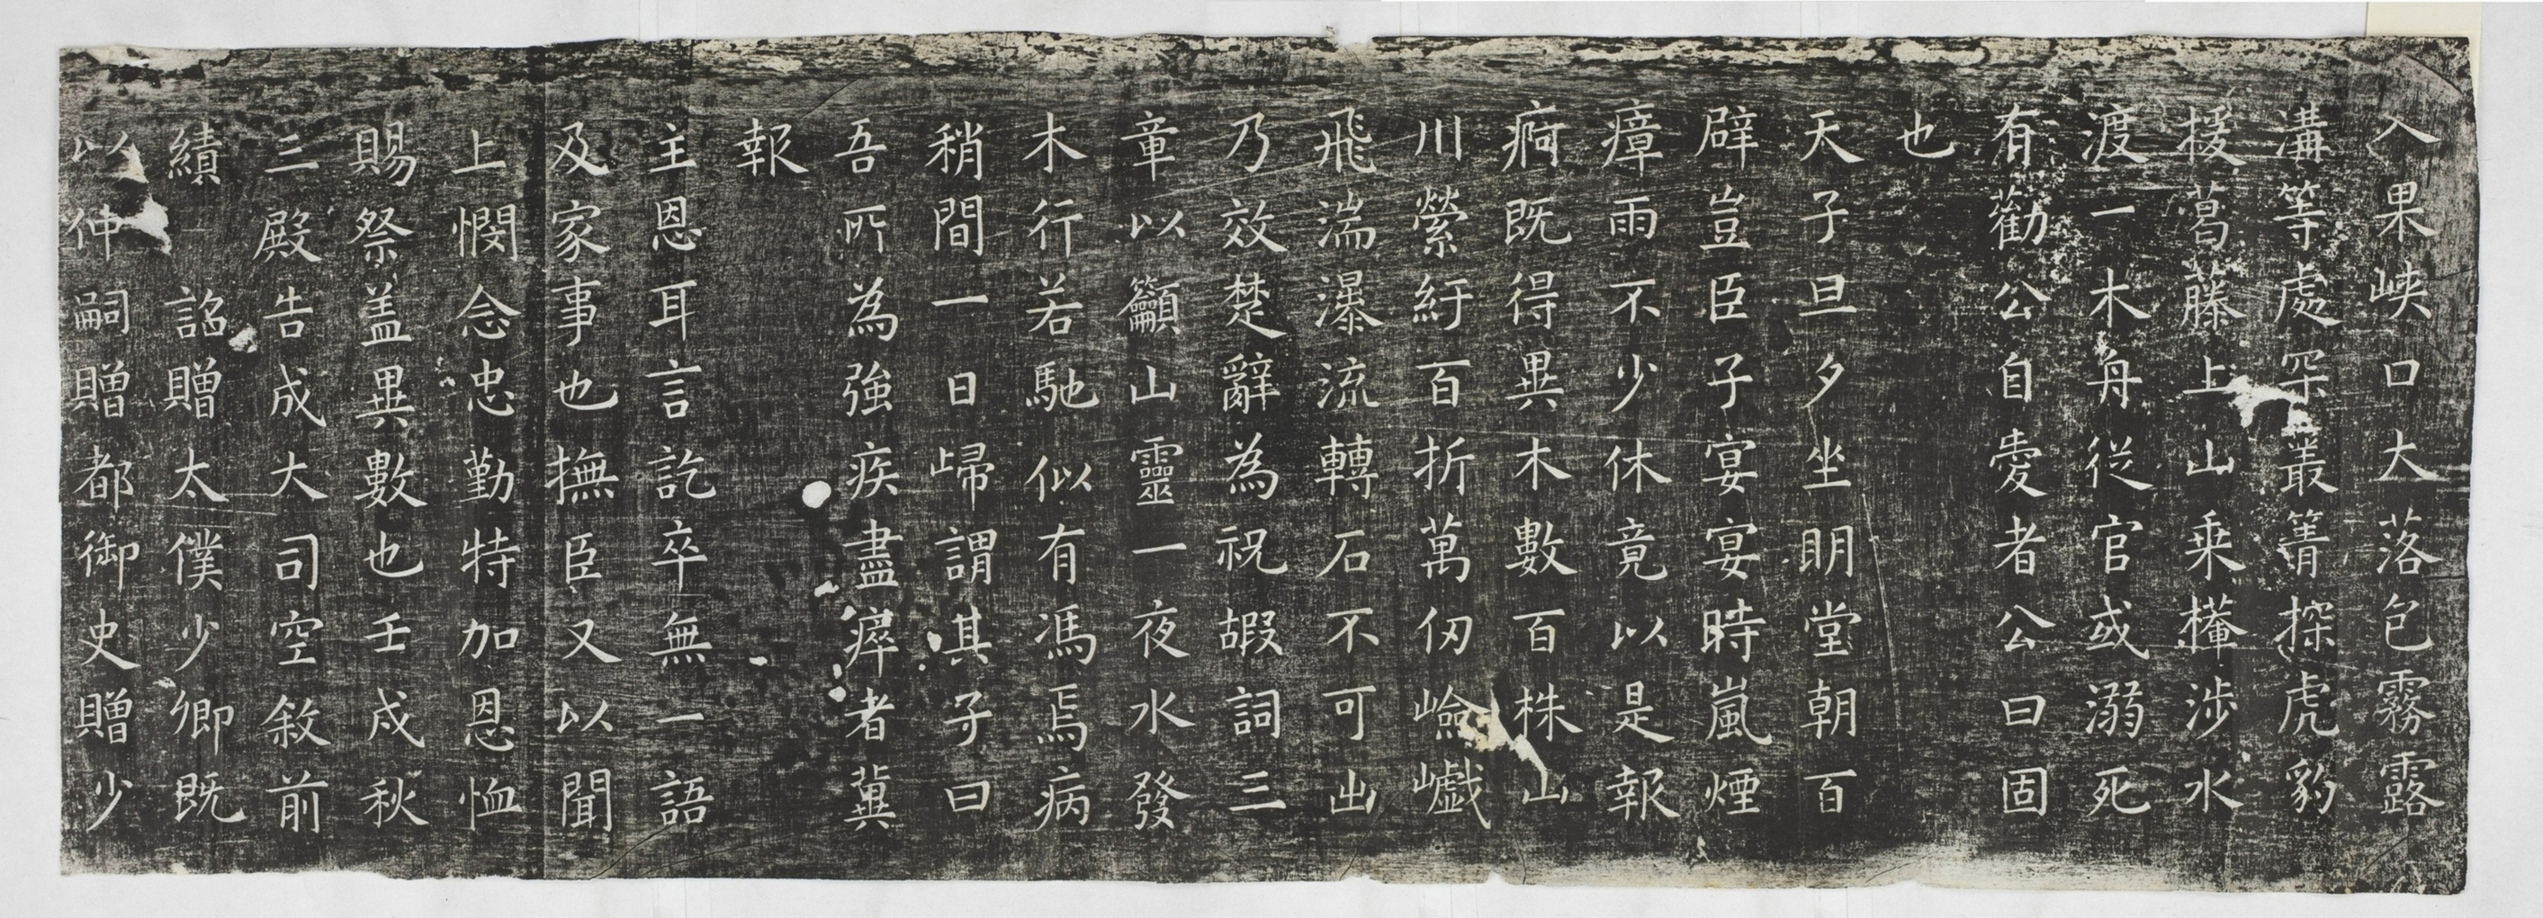 入果峽口大落包霧露
溝等處罙叢箐探虎豹
援葛藤上山乗橇涉水
渡一木舟從官或溺死
有勸公自愛者公曰固
也
天子旦夕坐明堂朝百
辟豈臣子宴宴時嵐煙
瘴雨不少休竟以是報
痾既得異木數百株山
川縈紆百折萬仞嶮巇
飛湍瀑流轉石不可出
乃效楚辭為祝嘏詞三
章以籲山靈一夜水發
木行若馳似有馮焉病
稍間一日歸謂其子曰
吾所為強疾盡瘁者冀
報
主恩耳言訖卒無一語
及家事也撫臣又以聞
上憫念忠勤特加恩恤
賜祭盖異數也壬戌秋
三殿告成大司空敘前
績 詔贈太僕少卿既
以仲嗣贈都御史贈少